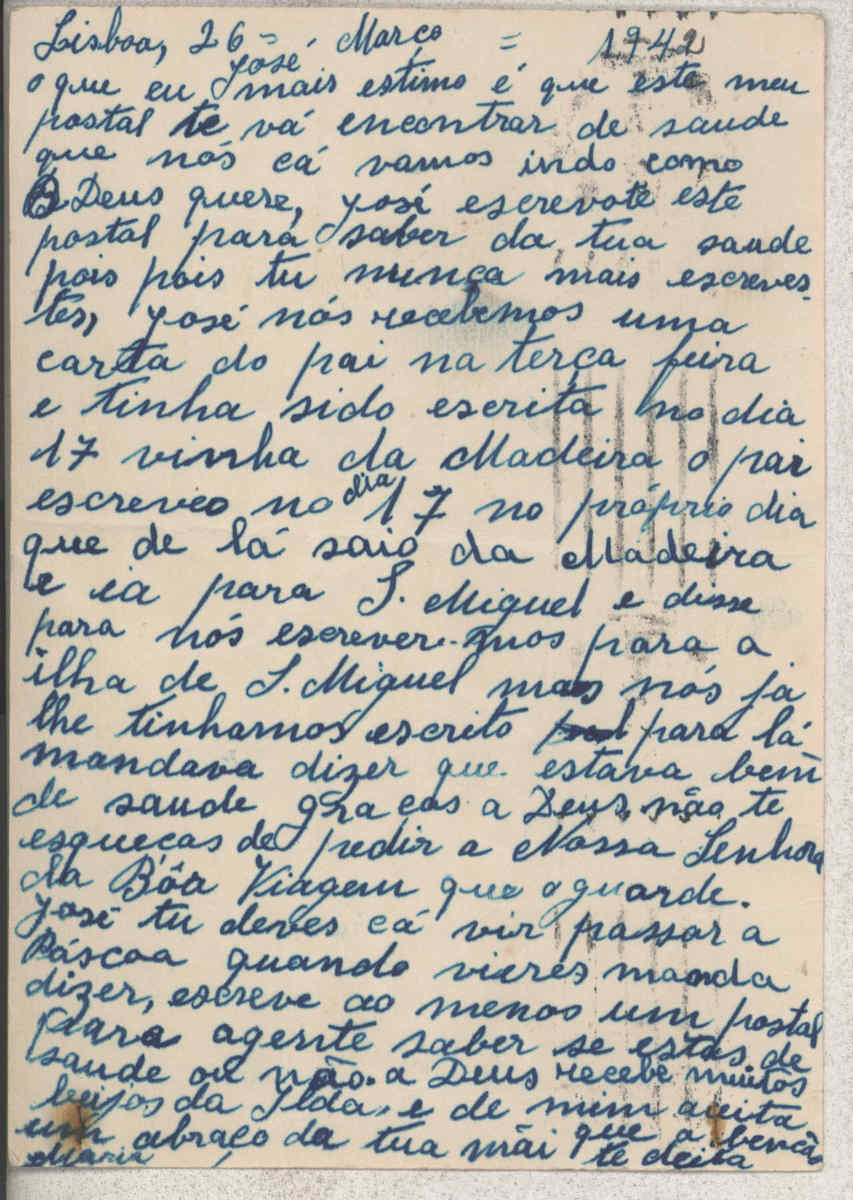 Lisboa, 26 = Março = 1942
José
o que eu mais estimo é que este meu
postal te vá encontrar de saude
que nós cá vamos indo como
Deus quere, José escrevote este
postal para saber da tua saude
pois pois tu nunca mais escreves-
tes, José nós recebemos uma
carta do pai na terça feira
e tinha sido escrita no dia
17 vinha da Madeira o pai
escreveo no dia 17 no próprio dia
que de lá saio da Madeira
e ia para S. Miguel e disse
para nós escrever-mos para a
ilha de S. Miguel mas nós já
lhe tinhamos escrito para lá
mandava dizer que estava bem
de saude graças a Deus, não te
esqueças de pedir a Nossa Senhora
da Bôa Viagem que o guarde.
José tu deves cá vir passar a
Páscoa quando vieres manda
dizer, escreve ao menos um postal
para agente saber se estas de
saude ou não. a Deus recebe muitos
beijos da Ilda. e de mim aceita
um abraço da tua mãi que a benção
Maria te deita